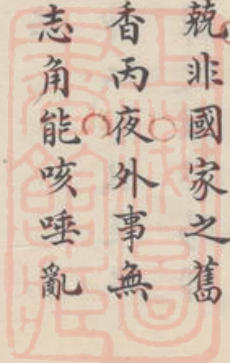 兢非國家之舊
香丙夜外事無
志角能咳唾亂